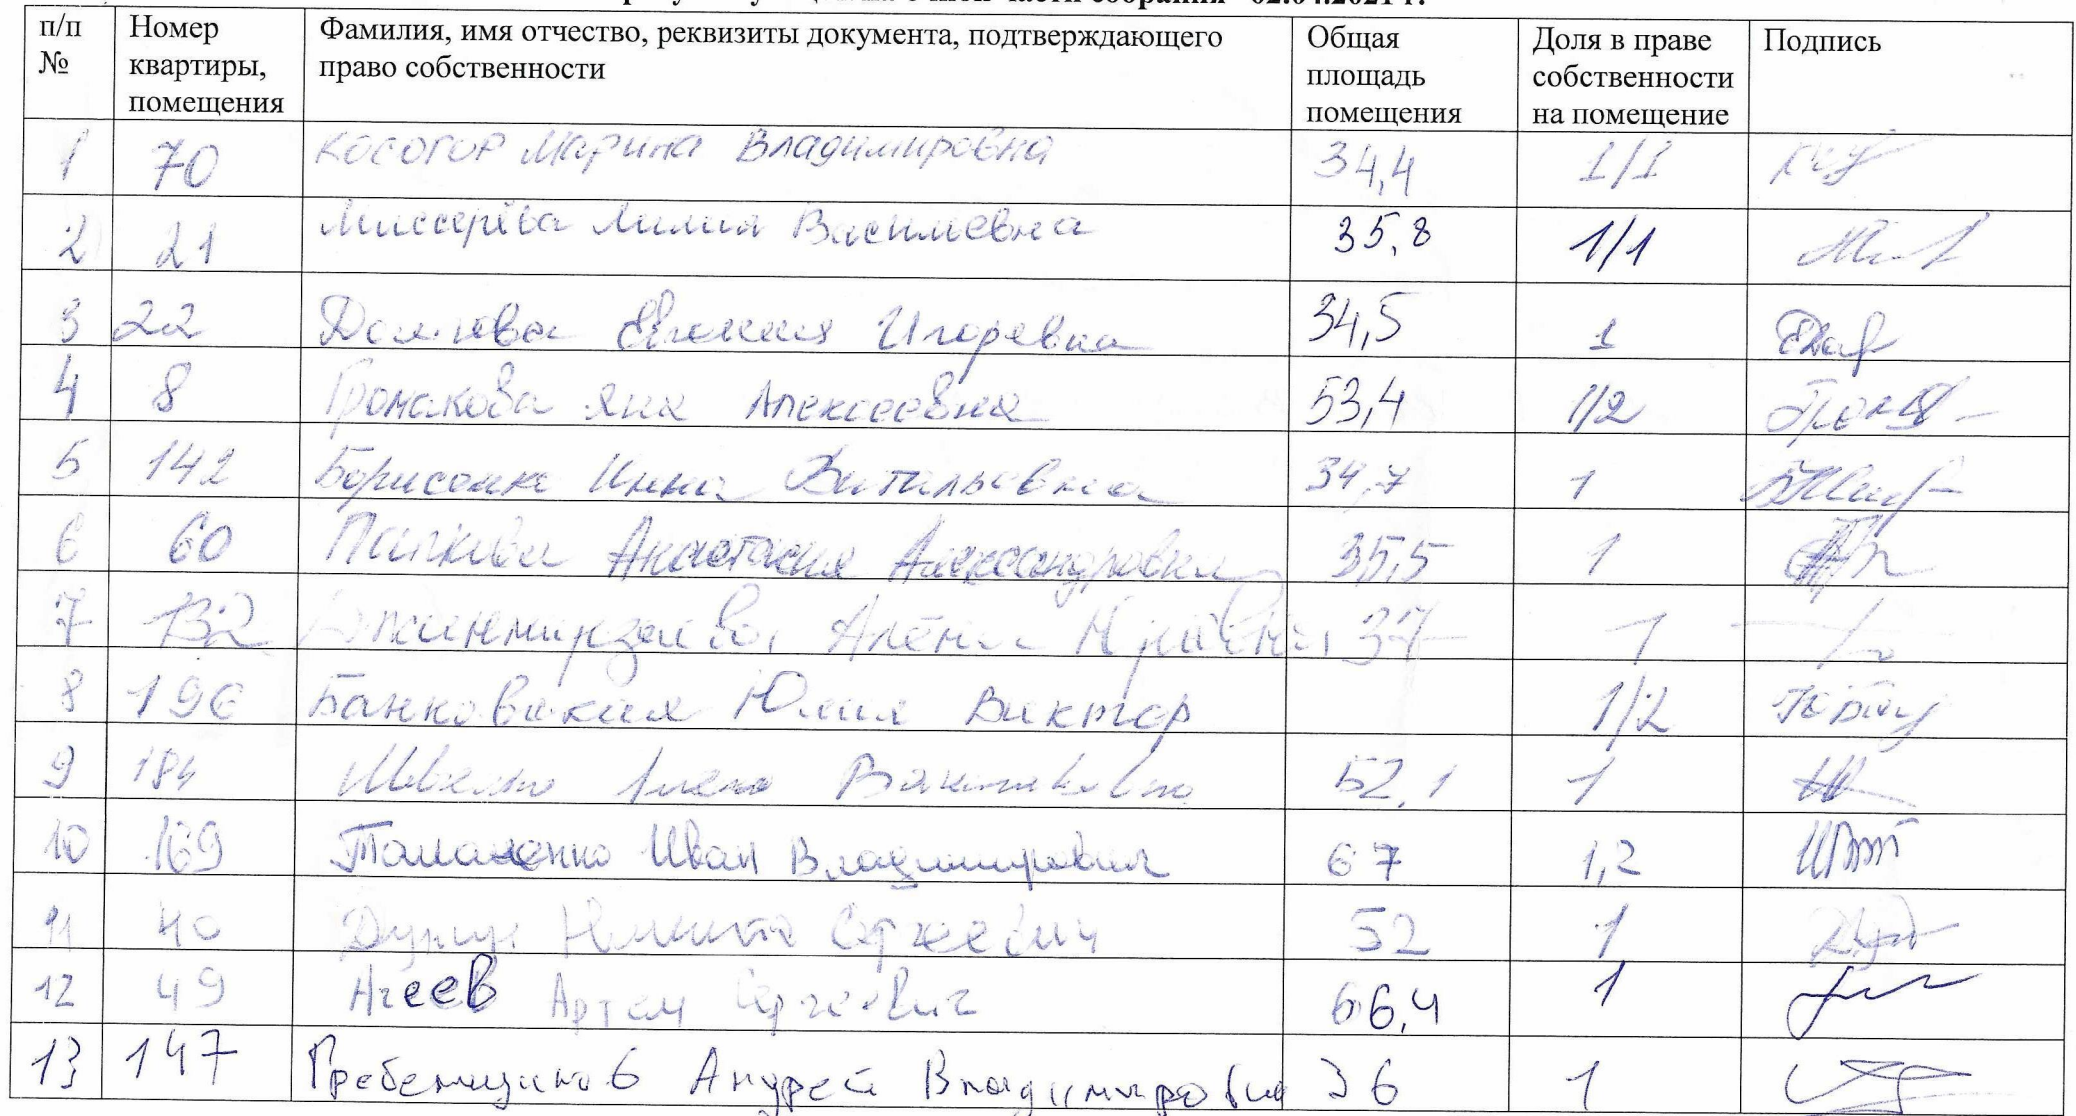 02.04.2021 г.
п/п № Номер квартиры, помещения Фамилия, имя отчество, реквизиты документа, подтверждающего право собственности Общая площадь помещения Доля в праве собственности на помещение Подпись
1 70 Косогор Марина Владимировна 34,4 1/1
2 21 Лилия Василевна 35,8 1/1
3 22 Евгения Игоревна 34,5 1
4 8 Громакова Яна Алексеевна 53,4 1/2
5 142 Борисенко Инна Витальевна 34,7 1
6 60 Папкова Анастасия Александровна 35,5 1
7 132 Алёна 37 1
8 196 Юлия Виктор 1/2
9 184 52,1 1
10 169 Иван Владимирович 67 1,2
11 40 Сергеевич 52 1
12 49 Агеев Артем Сергеевич 66,4 1
13 147 Гребенщиков Андрей Владимирович 36 1